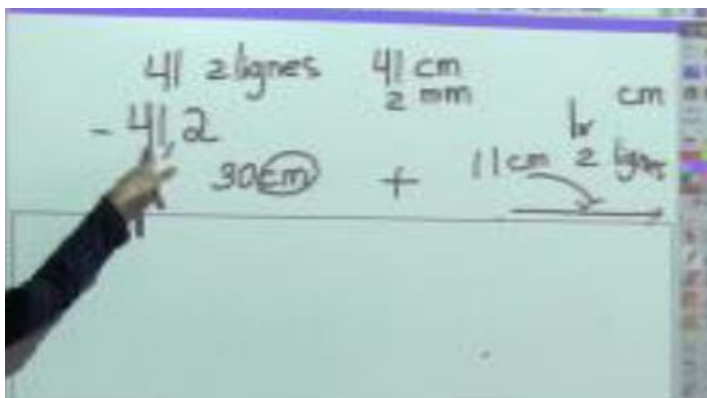 41 2 lignes 41 cm
2 mm
cm
- 41,2
30 cm + 11 cm 2 lignes